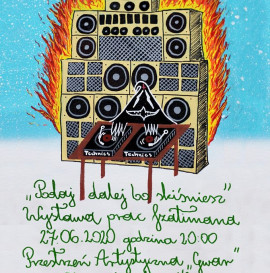 Technics Technics
„Podaj dalej bo skiśniesz"
Wystawa prac fratimana
27.06.2020 godzina 20:00
Przestrzeń Artystyczna „Gwar"